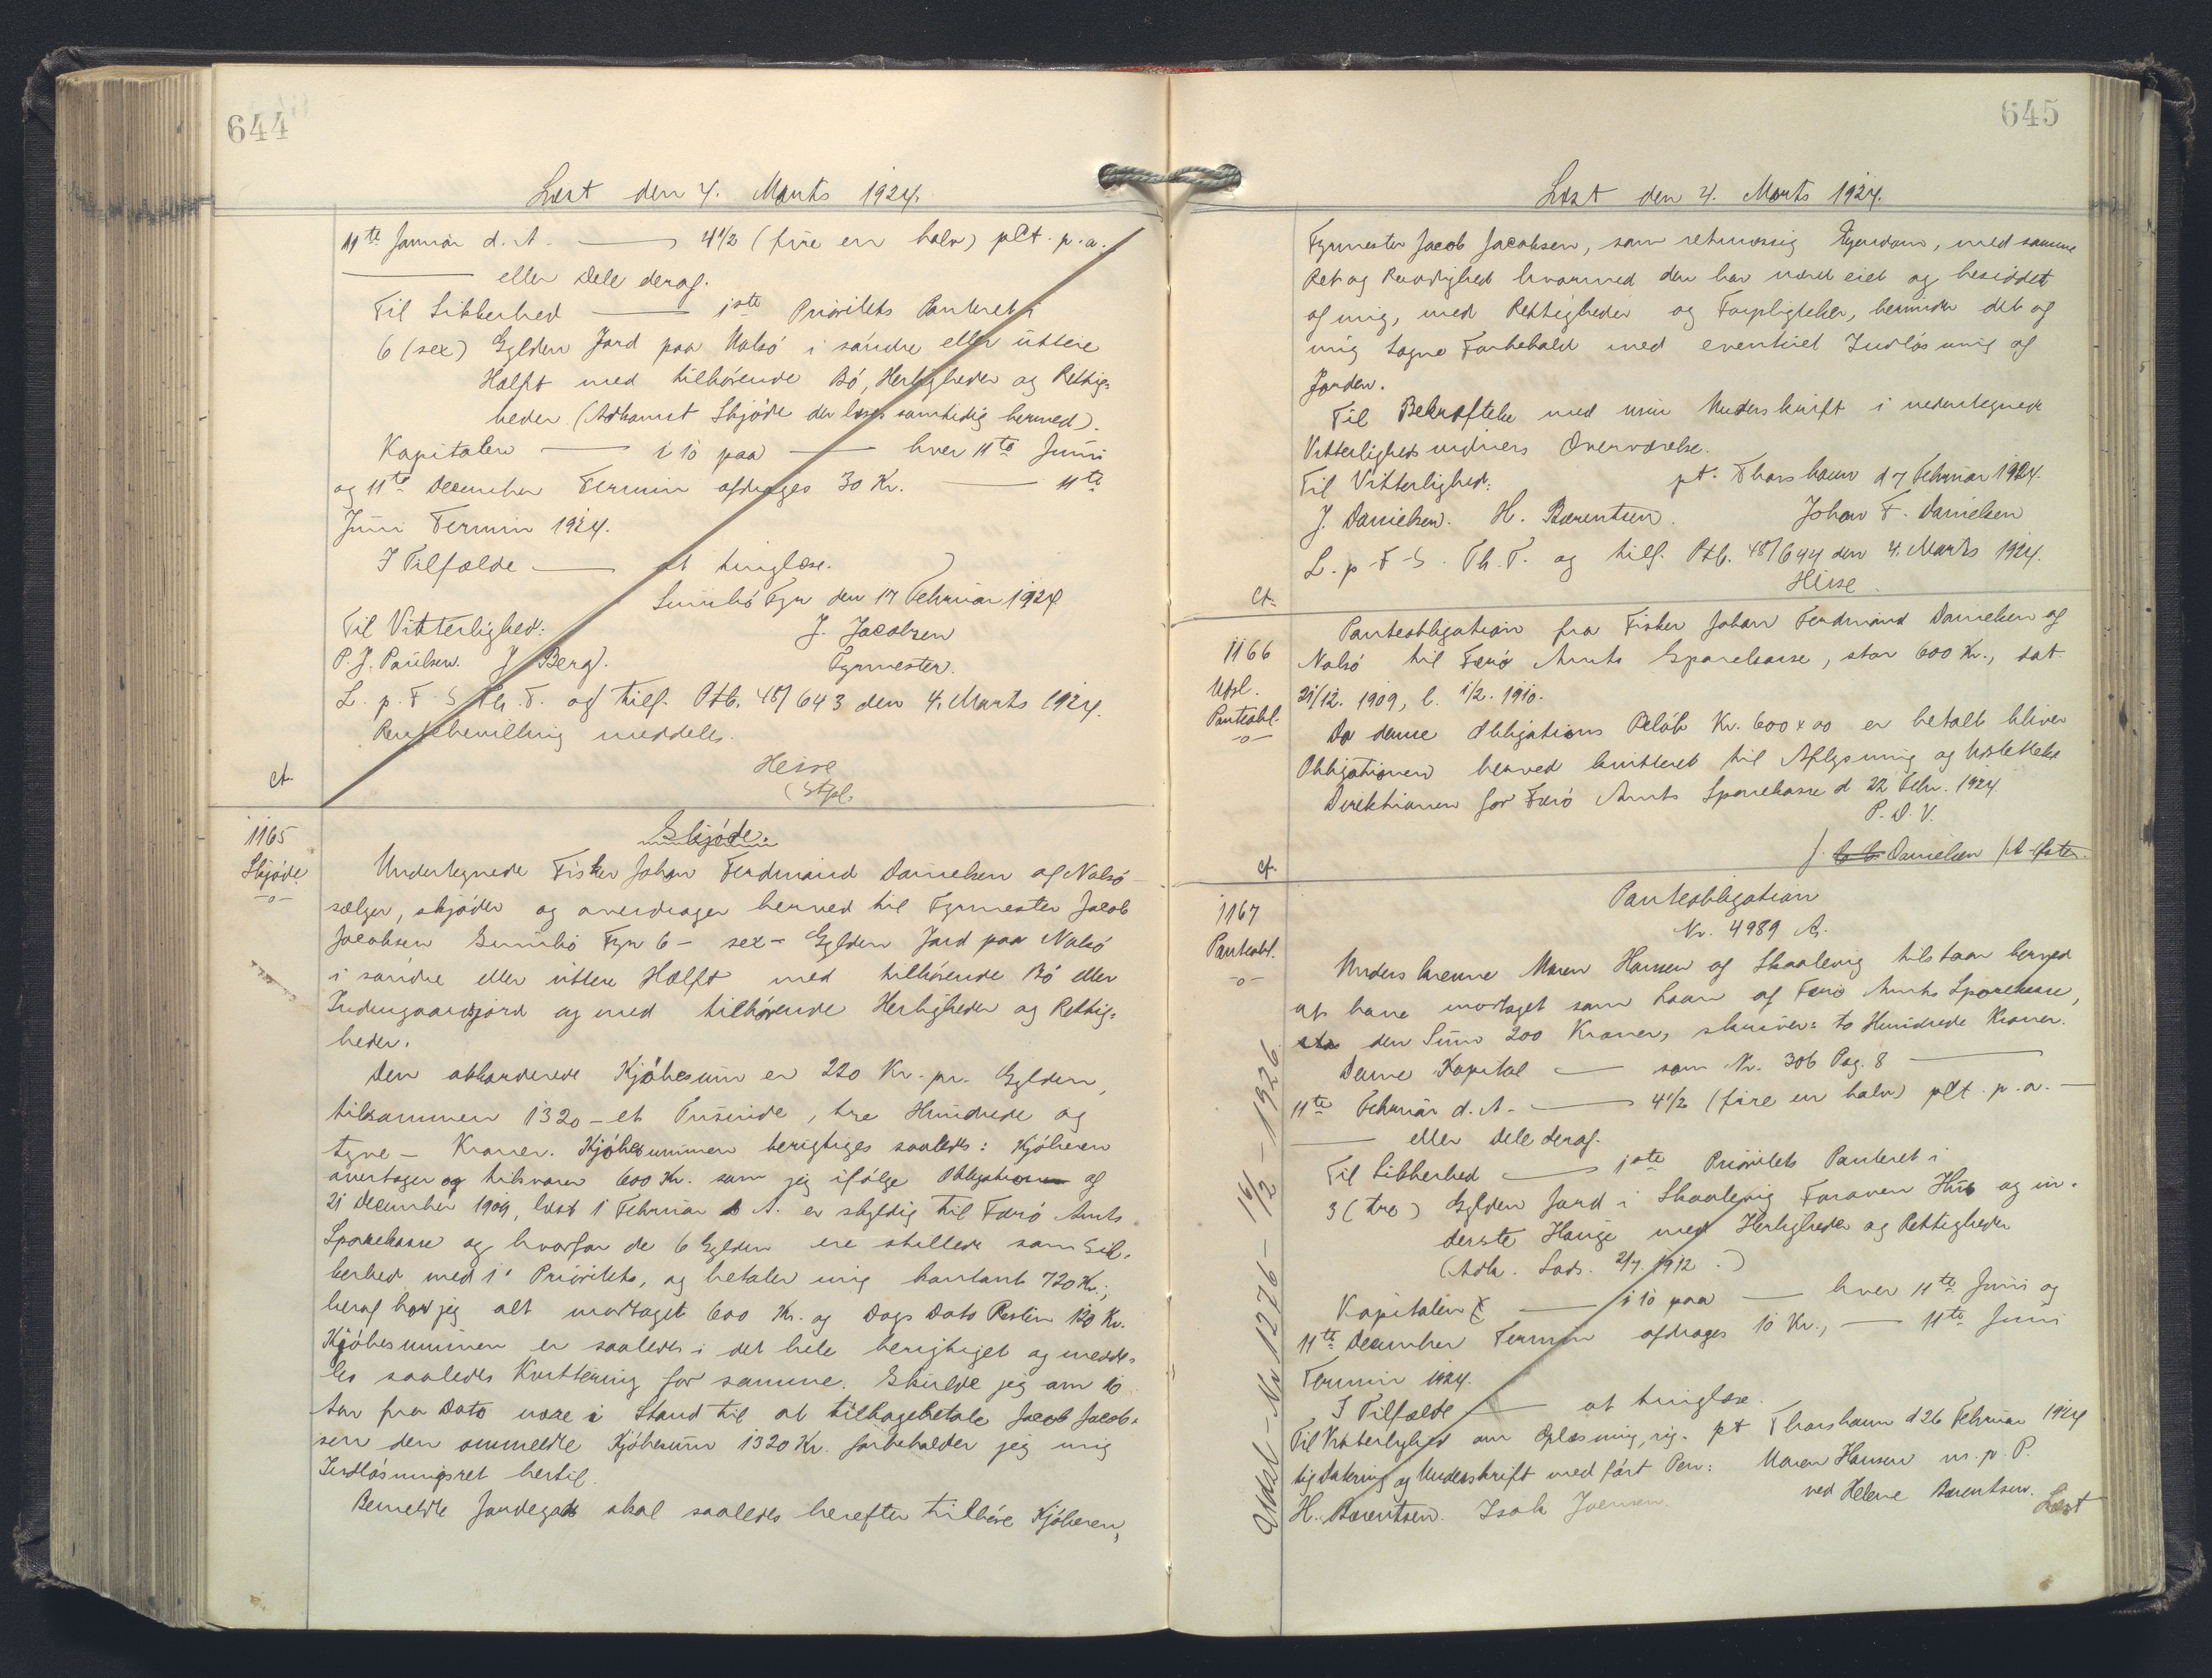 644
Læst den 4. Marts 1924.
11te Januar d. A. — 4½ (fire en halv) pCt. p. a.
— eller Dele deraf.
Til Sikkerhed — 1ste Prioritets Panteret i
6 (sex) Gylden Jord paa Nolsö i söndre eller üttere
Halft med tilhörende Bö, Herligheder og Rettig=
heder (Adkomst Skjöde der læses samtidig hermed).
Kapitalen — § 10 paa — hver 11te Juni
og 11te December Termin afdrages 30 Kr. — 11te
Juni Termin 1924.
I Tilfælde — at tinglæse.
Sumbö Fyr den 17 Februar 1924
Til Vitterlighed: J. Jacobsen
P. J. Poulsen. J Berg. Fyrmester.
L. p. F. S. Th. T. og tilf. Ptb. 48/643 den 4. Marts 1924.
Rentebevilling meddeles.
Heise
(Stpl.
Ct.
1165
Skjöde
-o-
Skjöde.
Undertegnede Fisker Johan Ferdinand Danielsen af Nolsö
sælger, skjöder og overdrager herved til Fyrmester Jacob
Jacobsen Sumbö Fyr 6 - sex - Gylden Jord paa Nolsö
i söndre eller üttere Halft med tilhörende Bö eller
Indengaardsjord og med tilhörende Herligheder og Rettig=
heder.
Den akkorderede Kjöbesum er 220 Kr. pr. Gylden,
tilsammen 1320 - et Tusinde, tre Hundrede og
tyve - Kroner. Kjöbesummen berigtiges saaledes: Kjöberen
overtager og tilsvarer 600 Kr. som jeg ifölge Obligation af
21 December 1909, læst 1 Februar d. A. er skyldig til Færö Amts
Sparekasse og hvorfor de 6 Gylden ere stillede som Sik=
kerhed med 1' Prioritets, og betaler mig kontant 720 Kr.;
heraf har jeg alt modtaget 600 Kr. og Dags Dato Resten 120 Kr.
Kjöbesummen er saaledes i det hele berigtiget og medde=
les saaledes Kvittering for samme. Skulde jeg om 10
Aar fra Dato være i Stand til at tilbagebetale Jacob Jacob=
sen den ommeldte Kjöbesum 1320 Kr. forbeholder jeg mig
Indlösningsret hertil.
Bemeldte Jordegods skal saaledes herefter tilhöre Kjöberen,
645
Læst den 4. Marts 1924.
Fyrmester Jacob Jacobsen, som retmæssig Ejendom, med samme
Ret og Raadighed hvormed den har været eiet og besiddet
af mig, med Rettigheder og Forpligtelser, herunder det af
mig tagne Forbehold med eventuel Indlösning af
Jorden.
Til Bekræftelse med min Underskrift i nedentegnede
Vitterlighedsvidners Overværelse.
Til Vitterlighed: pt. Thorshavn d 7 Februar 1924.
J. Danielsen. H. Bærentsen. Johan F. Danielsen
L. p F S. Th. T. og tilf. Ptb. 48/644 den 4. Marts 1924.
Heise.
Ct.
1166
Udsl.
Panteobl.
-o-
Panteobligation fra Fisker Johan Ferdinand Danielsen af
Nolsö til Færö Amts Sparekasse, stor 600 Kr., dat.
21/12. 1909, l. 1/2. 1910.
Da denne Obligations Belöb Kr. 600 x 00 er betalt bliver
Obligationen herved kvitteret til Aflysning og Udslettelse
Direktionen for Færö Amts Sparekasse d 22 Febr. 1924
P. D. V.
J. Danielsen
Ct.
1167
Panteobl.
-o-
Panteobligation
Nr. 4989 A.
Underskrevne Maren Hansen af Skaalevig tilstaar herved
at have modtaget som Laan af Færö Amts Sparekasse,
den Sum 200 Kroner, skriver: to Hundrede Kroner.
Denne Kapital — som Nr. 306 Pag. 8 —
11te Februar d. A. — 4½ (fire en halv) pCt. p. a. —
— eller Dele deraf.
Til Sikkerhed — 1ste Prioritets Panteret i
3 (tre) Gylden Jord i Skaalevig Foraven Hus og in=
derste Hauge med Herligheder og Rettigheder
(Adk. Lods. 2/7. 1912.)
Kapitalen — § 10 paa — hver 11te Juni og
11te December Termin afdrages 10 Kr., — 11te Juni
Termin 1924.
I Tilfælde — at tinglæse.
Til Vitterlighed om Oplæsning, rig= pt Thorshavn d 26 Februar 1924
tig Datering og Underskrift med fört Pen: Maren Hansen m. p. P.
H. Bærentsen. Isak Joensen. ved Helene Bærentsen.
Læst
Udsl - Nr 1276 - 16/2 - 1926.